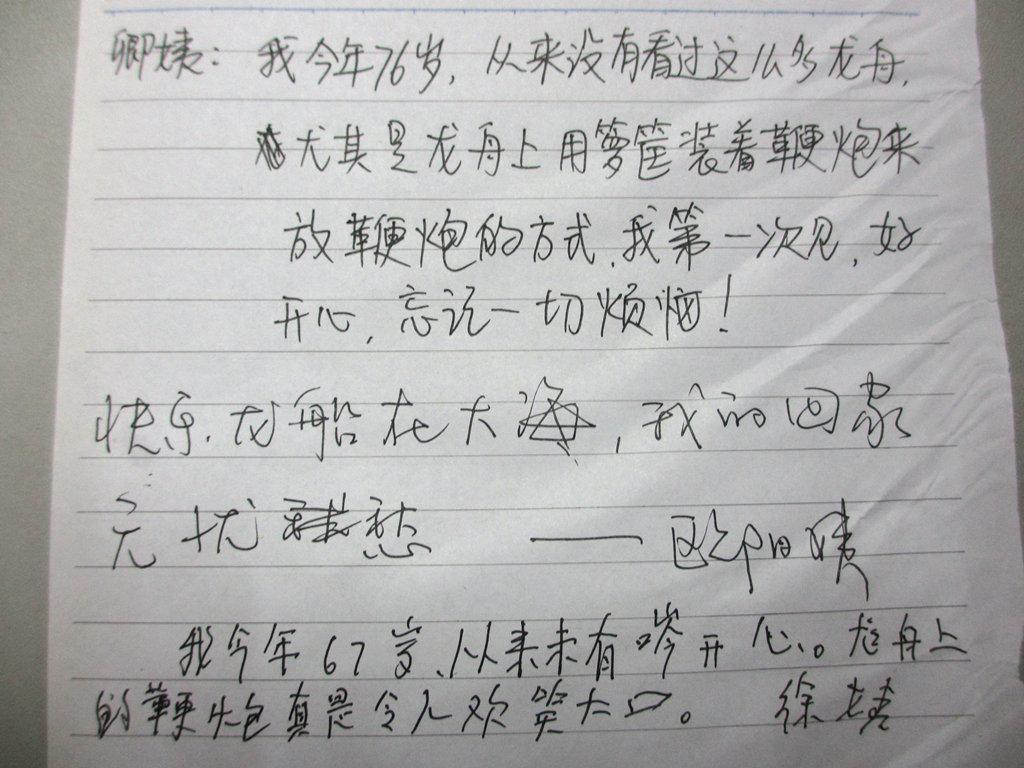 卿姨：我今年76岁，从来没有看过这么多龙舟，
尤其是龙舟上用箩筐装着鞭炮来
放鞭炮的方式，我第一次见，好
开心，忘记一切烦恼！
快乐，龙船在大海，我的回家
无忧愁 —— 欧阳姨
我今年67岁、从来未有咁开心。龙舟上
的鞭炮真是令人欢笑大口。 徐老